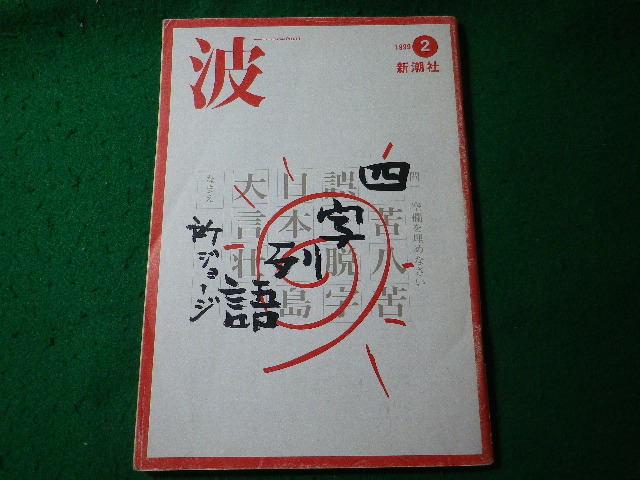 波
1999 2
新潮社
問 空欄を埋めなさい
四苦八苦
誤字脱字
日本列島
大言壮語
なまえ
所ジョージ